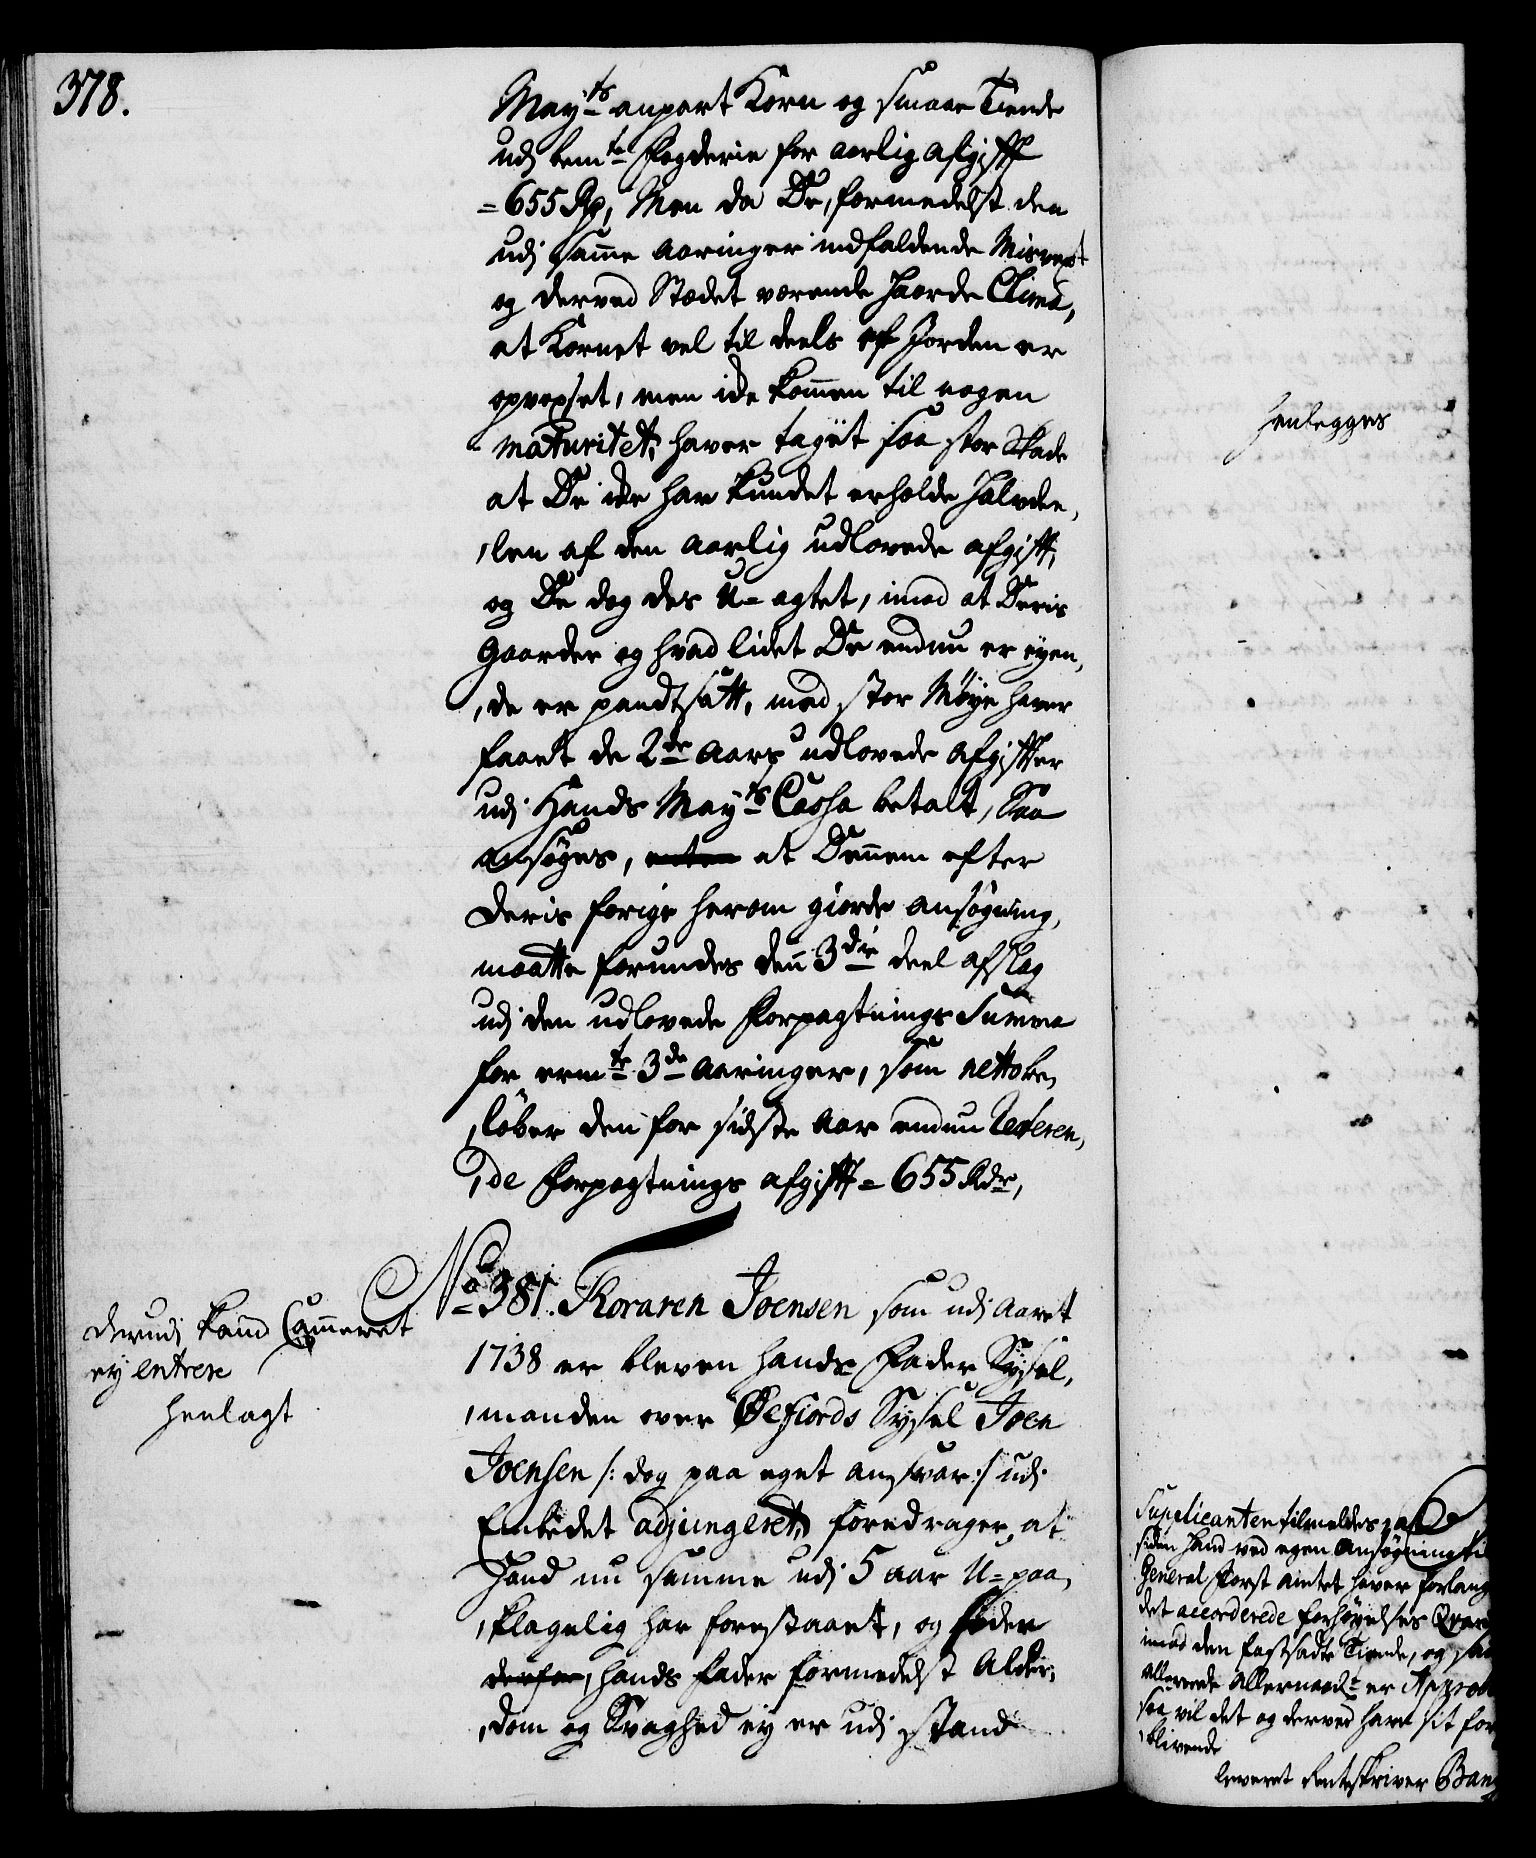 378.
Mayts anpart Korn og smaae Tiende
udj bemte Fogderie for aarlig afgifft
=655 Rdr, Men da De, formedelst den
udj samme aaringer indfaldende Misvext
og derved Stædet værende haarde Clima,
at Kornet vel til deels af Jorden er
opvoxset, men icke kommen til nogen
maturitet, haver taget saa stor Skade
at De icke har kundet erholde halvdee,
,len af den aarlig udlovede afgifft,
og De dog des U=agtet, imod at Deris
Gaarder og hvad lidet De endnu er eyen,
,de er pandtsatt, med stor Møye haver
faaet de 2de aars udlovede afgiffter
udj Hands Mayts Cassa betalt, Saa
ansøges, enten at Dennem efter
Deris forige herom giorde ansøgning,
maatte forundes den 3die deel afslag
udj den udlovede Forpagtnings Summa
for ermte 3de aaringer, som netto be,
,løber den for sidste aar endnu resteren,
,de Forpagtnings afgifft =655 Rdr,
No 381. Thoraren Joensen som udj aaret
1738 er bleven hands Fader Sysel,
,manden over Øefiords Sysel Joen
Joensen /: dog paa eget ansvar :/ udj
Embedet adjungeret, foredrager, at
Hand nu samme udj 5 aar U=paa,
,klagelig har forestaaet, og beder
derfor, hands Fader formedelst Alder,
,dom og Svaghed ey er udj stand
Derudj kand Cammeret
ey entrere
henlagt
henlegges
Supplicanten tilmeldes, at
siden hand ved egen Ansøgning til
General Forst Amtet haver forlang
det accorderede forhøyelses Qvan
imod den fastsatte Tiende, og saa
allerede allernaadt er Approb
saa vil det og derved have sit for
,blivende
leveret Renteskriver Bang